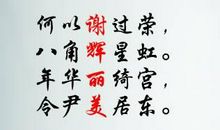 何以谢过荣，
八角辉星虹。
年华丽绮宫，
令尹美居东。